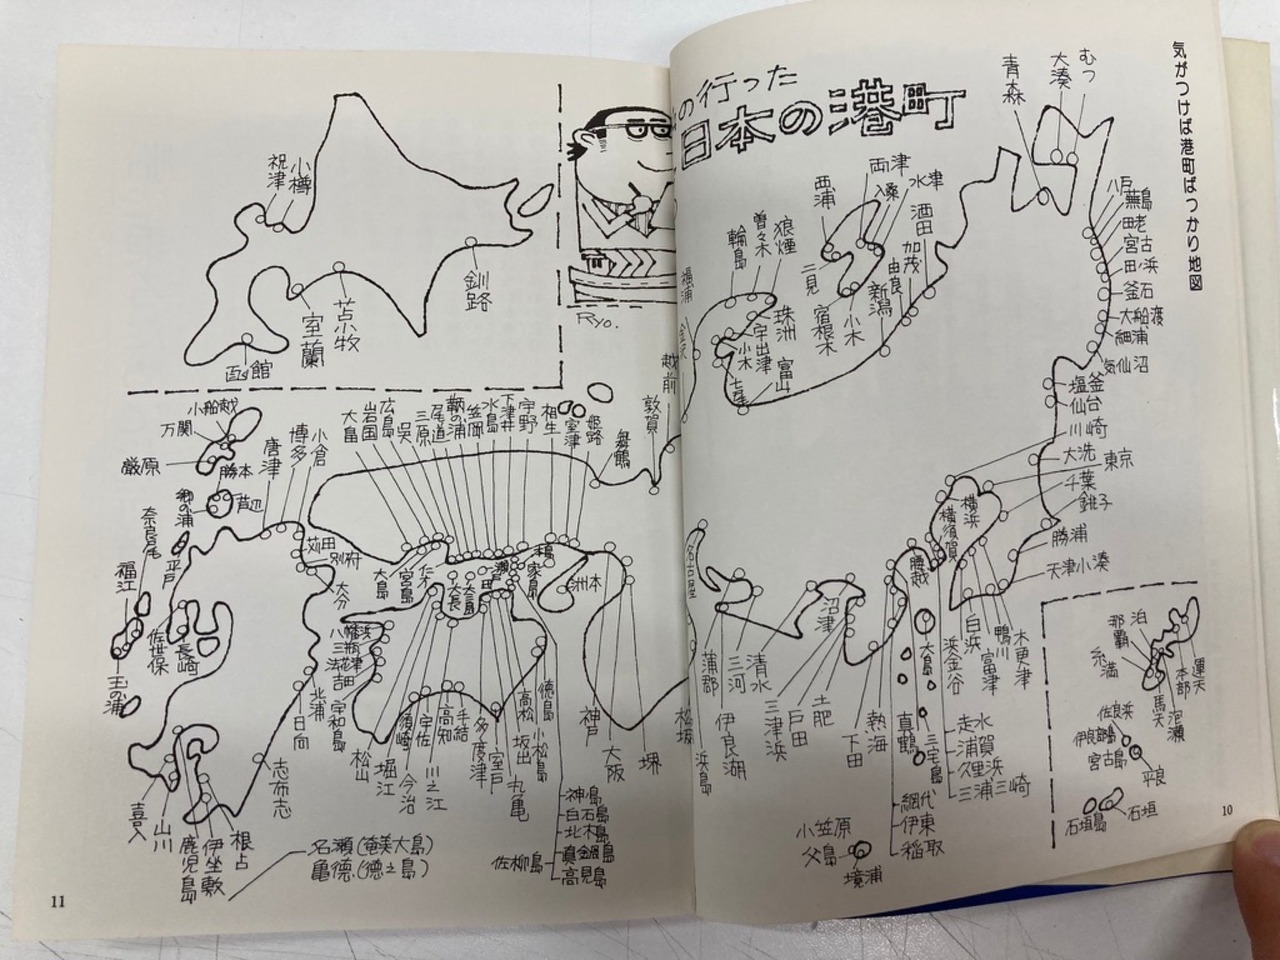 気がつけば港町ばっかり地図
の行った
日本の港町
むつ
大湊
青森
八戸
蕪島
田老
宮古
田ノ浜
釜石
大船渡
細浦
気仙沼
塩釜
仙台
川崎
大洗
東京
千葉
銚子
勝浦
天津小湊
両津
水津
西浦
二見
宿根木
小木
酒田
加茂
由良
新潟
狼煙
曽々木
輪島
珠洲
宇出津
小木
富山
七尾
福浦
金沢
横浜
横須賀
木更津
鴨川
富津
白浜
浜金谷
大島
走水
浦賀
久里浜
三浦三崎
三宅島
真鶴
熱海
網代
伊東
稲取
下田
土肥
戸田
三津浜
沼津
清水
三河
伊良湖
蒲郡
名古屋
浜島
松坂
小笠原
父島
境浦
泊
那覇
糸満
運天
本部
馬天
泥瀬
佐良浜
宮古島
平良
石垣島
石垣
10
祝津
小樽
釧路
苫小牧
室蘭
函館
Ryo.
越前
敦賀
舞鶴
姫路
室津
相生
宇野
下津井
水島
笠岡
鞆の浦
尾道
三原
呉
広島
岩国
大畠
小倉
博多
唐津
小船越
万関
厳原
勝本
芦辺
郷の浦
奈良尾
平戸
福江
佐世保
長崎
玉の浦
苅田
別府
大分
大島
宮島
仁方
大長
家島
洲本
八幡浜
三瓶
法花津
吉田
北浦
宇和島
日向
志布志
松山
堀江
須崎
今治
宇佐
川之江
高知
手結
多度津
室戸
丸亀
坂出
高松
小松島
徳島
神戸
大阪
堺
神島
白石島
北木島
真鍋島
高見島
佐柳島
喜入
山川
鹿児島
伊坐敷
根占
名瀬(奄美大島)
亀徳(徳之島)
11